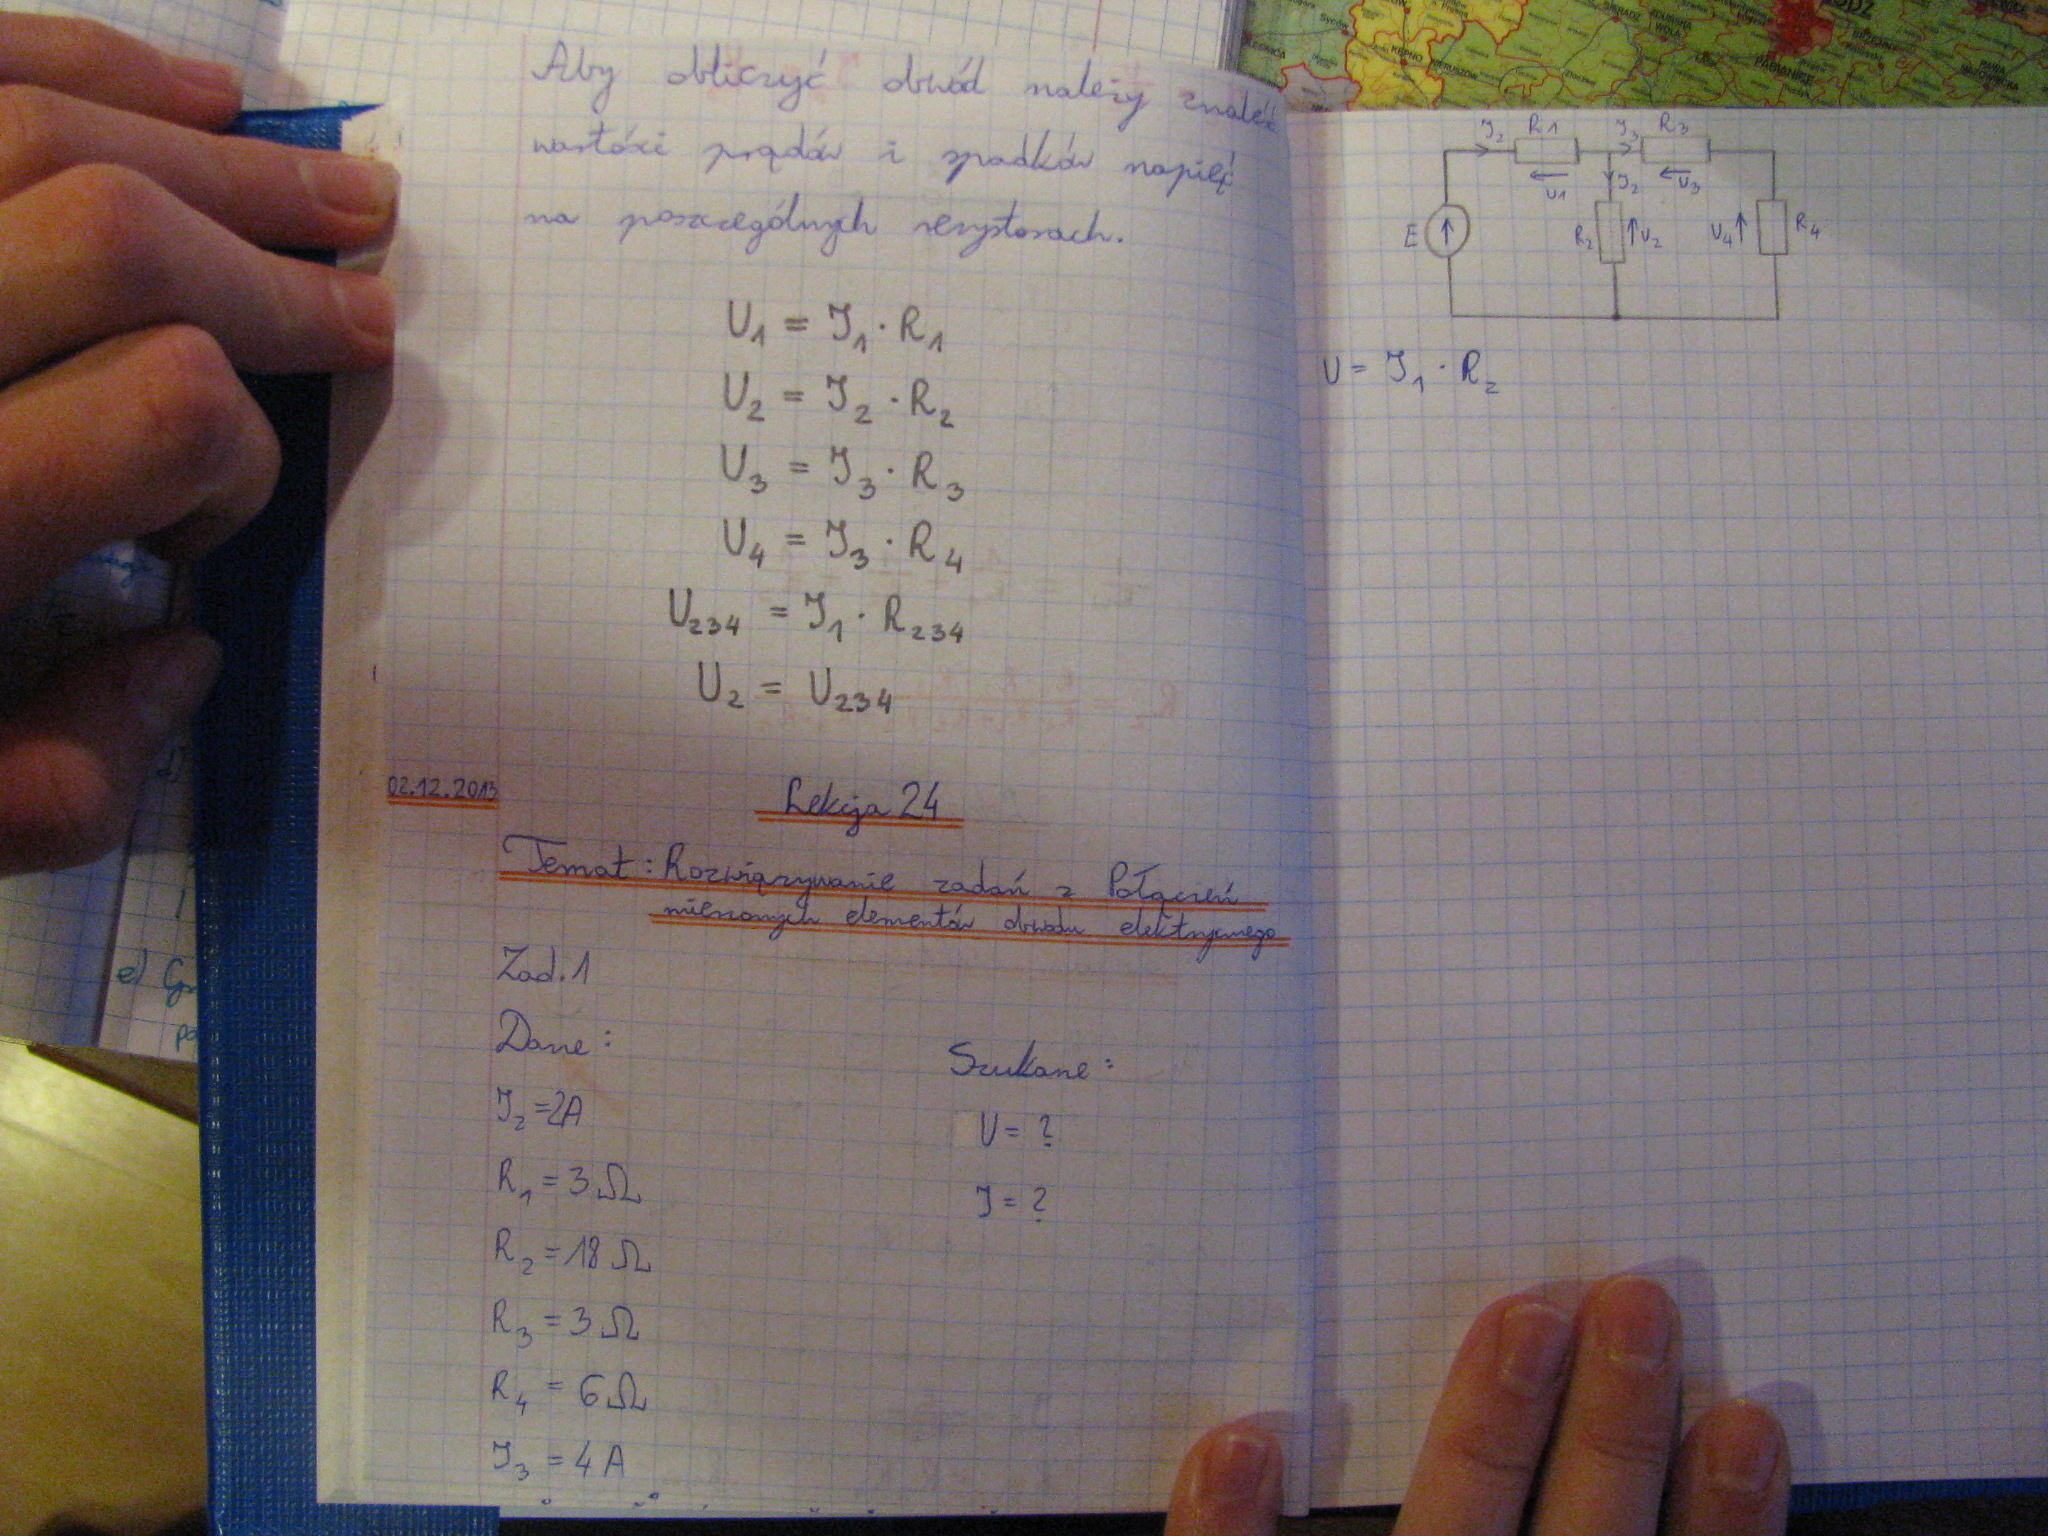 Aby obliczyć obwód należy znaleźć
wartości prądów i spadków napięć
na poszczególnych rezystorach.
U1 = I1 · R1
U2 = I2 · R2
U3 = I3 · R3
U4 = I3 · R4
U234 = I1 · R234
U2 = U234
02.12.2013
Lekcja 24
Temat: Rozwiązywanie zadań z Połącień
mieszanych elementów obwodu elektrycznego
Zad. 1
Dane:
I2 = 2A
R1 = 3 Ω
R2 = 18 Ω
R3 = 3 Ω
R4 = 6 Ω
I3 = 4 A
Szukane:
U = ?
I = ?
I2 R1 I3 R3
U1 I2 U3
E R2 U2 U4 R4
U = I1 · R2
e)
SIERADZ
ZDUŃSKA WOLA
PABIANICE
KĘPNO
WIERUSZÓW